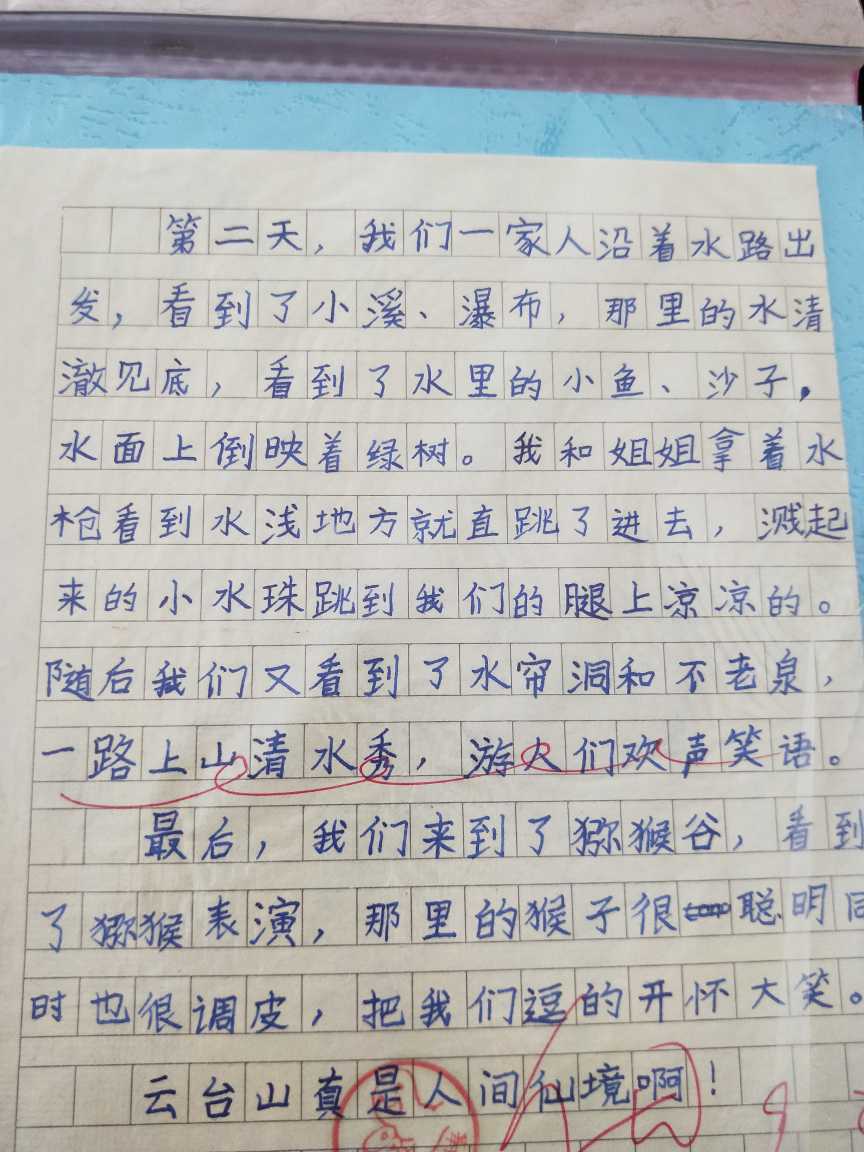 第二天，我们一家人沿着水路出
发，看到了小溪、瀑布，那里的水清
澈见底，看到了水里的小鱼、沙子，
水面上倒映着绿树。我和姐姐拿着水
枪看到水浅地方就直跳了进去，溅起
来的小水珠跳到我们的腿上凉凉的。
随后我们又看到了水帘洞和不老泉，
一路上山清水秀，游人们欢声笑语。
最后，我们来到了猕猴谷，看到
了猕猴表演，那里的猴子很聪明同
时也很调皮，把我们逗的开怀大笑。
云台山真是人间仙境啊！